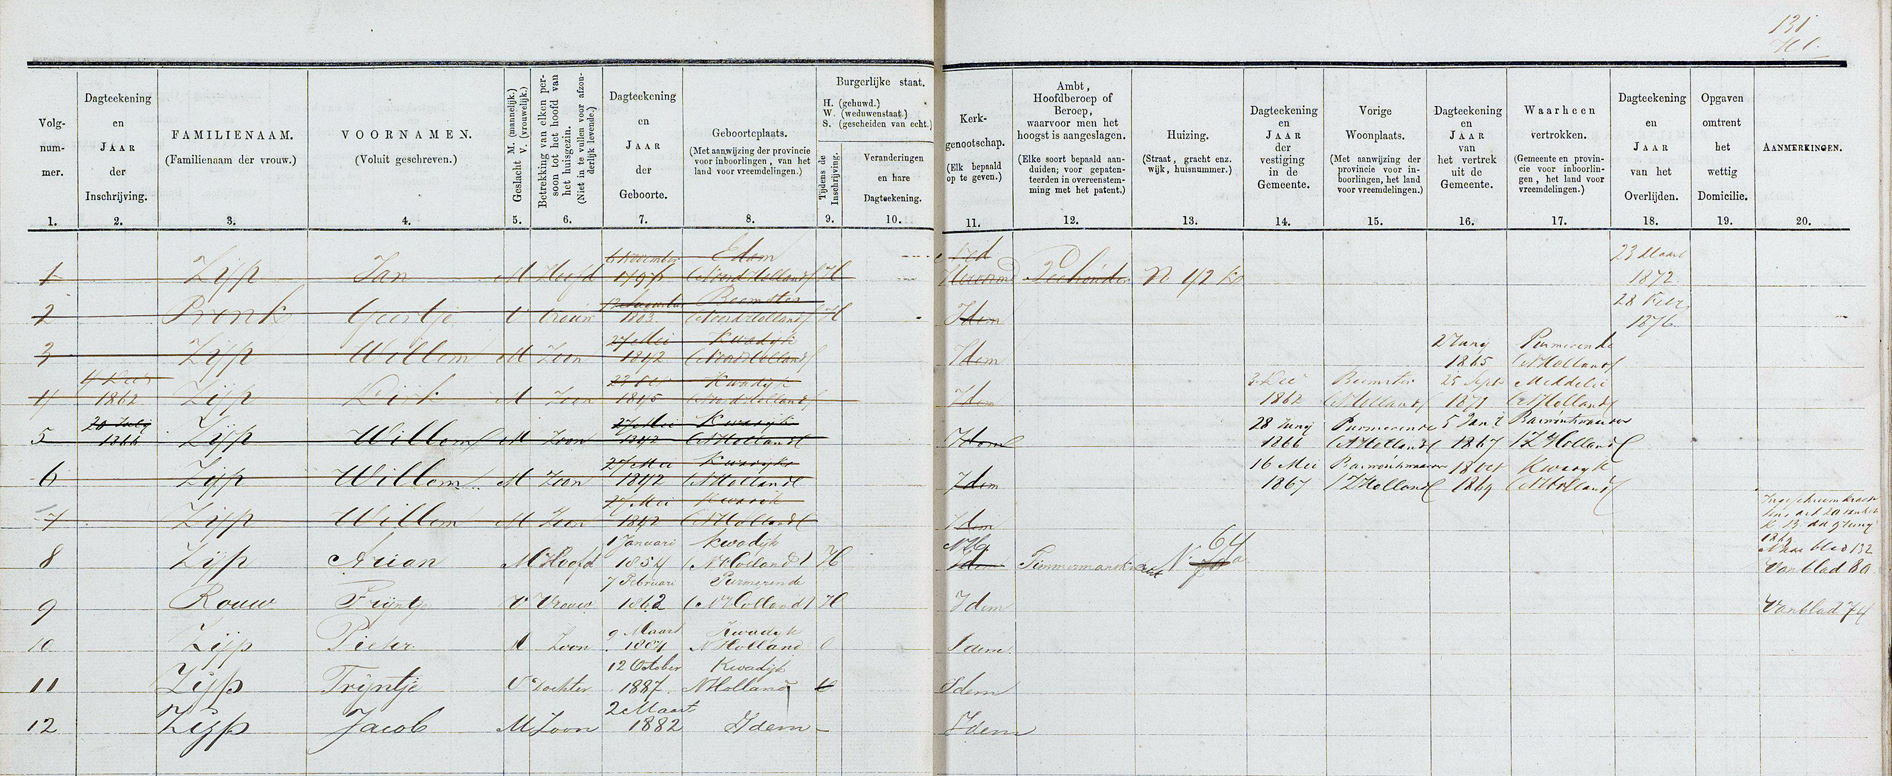 131
Volg-
num-
mer.
1.
Dagteekening
en
JAAR
der
Inschrijving.
2.
FAMILIENAAM.
(Familienaam der vrouw.)
3.
VOORNAMEN.
(Voluit geschreven.)
4.
Geslacht M. (mannelijk.)
V. (vrouwelijk.)
5.
Betrekking van elken per-
soon tot het hoofd van
het huisgezin.
(Niet in te vullen voor afzon-
derlijk levende.)
6.
Dagteekening
en
JAAR
der
Geboorte.
7.
Geboorteplaats.
(Met aanwijzing der provincie
voor inboorlingen, van het
land voor vreemdelingen.)
8.
Burgerlijke staat.
H. (gehuwd.)
W. (weduwenstaat.)
S. (gescheiden van echt.)
Tijdens de
Inschrijving.
9.
Veranderingen
en hare
Dagteekening.
10.
Kerk-
genootschap.
(Elk bepaald
op te geven.)
11.
Ambt,
Hoofdberoep of
Beroep,
waarvoor men het
hoogst is aangeslagen.
(Elke soort bepaald aan-
duiden; voor gepaten-
teerden in overeenstem-
ming met het patent.)
12.
Huizing.
(Straat, gracht enz.
wijk, huisnummer.)
13.
Dagteekening
en
JAAR
der
vestiging
in de
Gemeente.
14.
Vorige
Woonplaats.
(Met aanwijzing der
provincie voor in-
boorlingen, het land
voor vreemdelingen.)
15.
Dagteekening
en
JAAR
van
het vertrek
uit de
Gemeente.
16.
Waarheen
vertrokken.
(Gemeente en provin-
cie voor inboorlin-
gen, het land voor
vreemdelingen.)
17.
Dagteekening
en
JAAR
van het
Overlijden.
18.
Opgaven
omtrent
het
wettig
Domicilie.
19.
AANMERKINGEN.
20.
6 November Edam Ned 23 Maart
1 Zijp Jan M Hoofd 1796 (Noord Holland) H Hervormd Veehouder N 42 1872
Beemster 28 Febr
2 Pronk Geertje V Vrouw 1803 (Noord Holland) H Idem 1876
27 Mei Kwadijk Purmerende
3 Zijp Willem M Zoon 1842 (Noord Holland) Idem 1865 (NHolland)
Kwadijk Beemster 25 Sept Middelie
4 1862 Zijp Dirk M Zoon 1845 (Noord Holland) Idem 1862 (NHolland) (NHolland)
20 July 27 Mei Kwadijk 28 Juny Purmerende
5 1866 Zijp Willem M Zoon 1842 (NHolland) Idem 1866 (NHolland) 1867 (ZHolland)
27 Mei Kwadijk 16 Mei Kwadijk
6 Zijp Willem M Zoon 1842 (NHolland) Idem 1867 (ZHolland) 1869 (NHolland)
27 Mei Kwadijk
7 Zijp Willem M Zoon 1842 (NHolland) Idem
1 Januari Kwadijk NHg 64 Naar blad 132
8 Zijp Arian M Hoofd 1854 (NHolland) H Idem Timmermansknecht N a Van blad 80
7 Februari Purmerende
9 Rouw Trijntje V Vrouw 1862 (NHolland) H Idem Van blad 74
9 Maart Kwadijk
10 Zijp Pieter M Zoon 1884 NHolland O Idem
12 October Kwadijk
11 Zijp Trijntje V dochter 1887 NHolland Idem
2 Maart
12 Zijp Jacob M Zoon 1882 Idem Idem